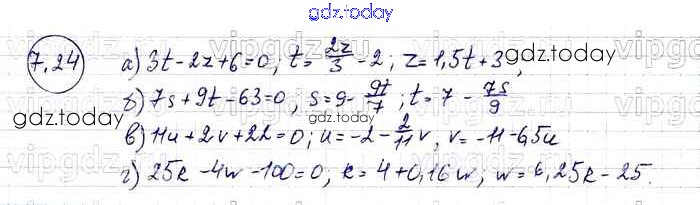 gdz.today
7.24 а) 3t-2z+6=0, t=2z/3-2; z=1,5t+3,
gdz.today
б) 7s+9t-63=0, s=9-9t/7; t=7-7s/9
gdz.today
в) 11u+2v+22=0; u=-2-2/11v, v=-11-5,5u
г) 25k-4w-100=0, k=4+0,16w; w=6,25k-25.